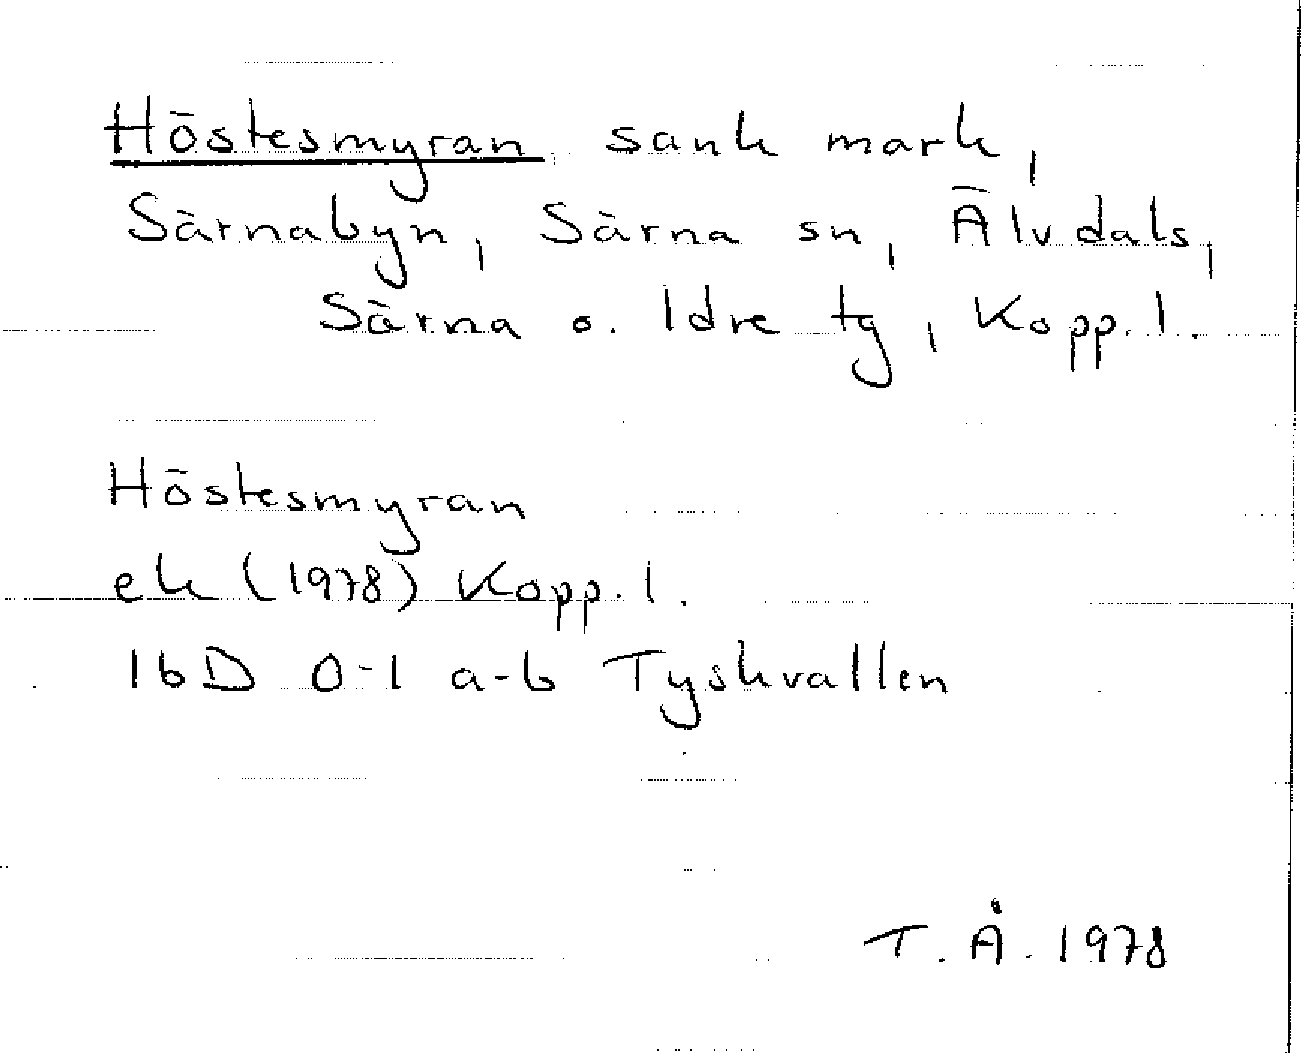 Höstesmyran, sank mark,
Särnabyn, Särna sn, Älvdals,
Särna o. Idre tg, Kopp. l.
Höstesmyran
ek (1978) Kopp. l.
16D 0-1 a-b Tyskvallen
T. Å. 1978